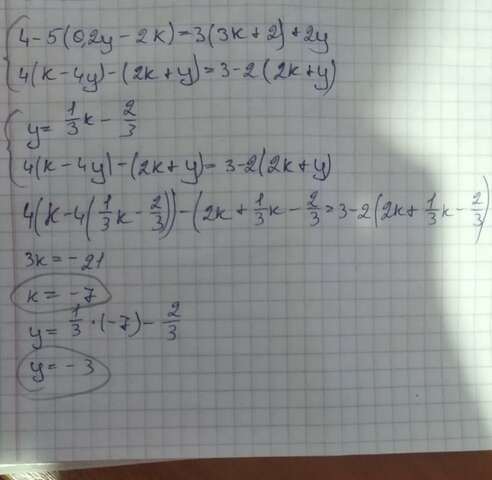 4-5(0,2y-2k)=3(3k+2)+2y
4(k-4y)-(2k+y)=3-2(2k+y)
y= 1/3 k - 2/3
4(k-4y)-(2k+y)=3-2(2k+y)
4(k-4(1/3 k - 2/3))-(2k+1/3 k - 2/3=3-2(2k+1/3 k - 2/3)
3k=-21
k=-7
y= 1/3 ·(-7) - 2/3
y=-3